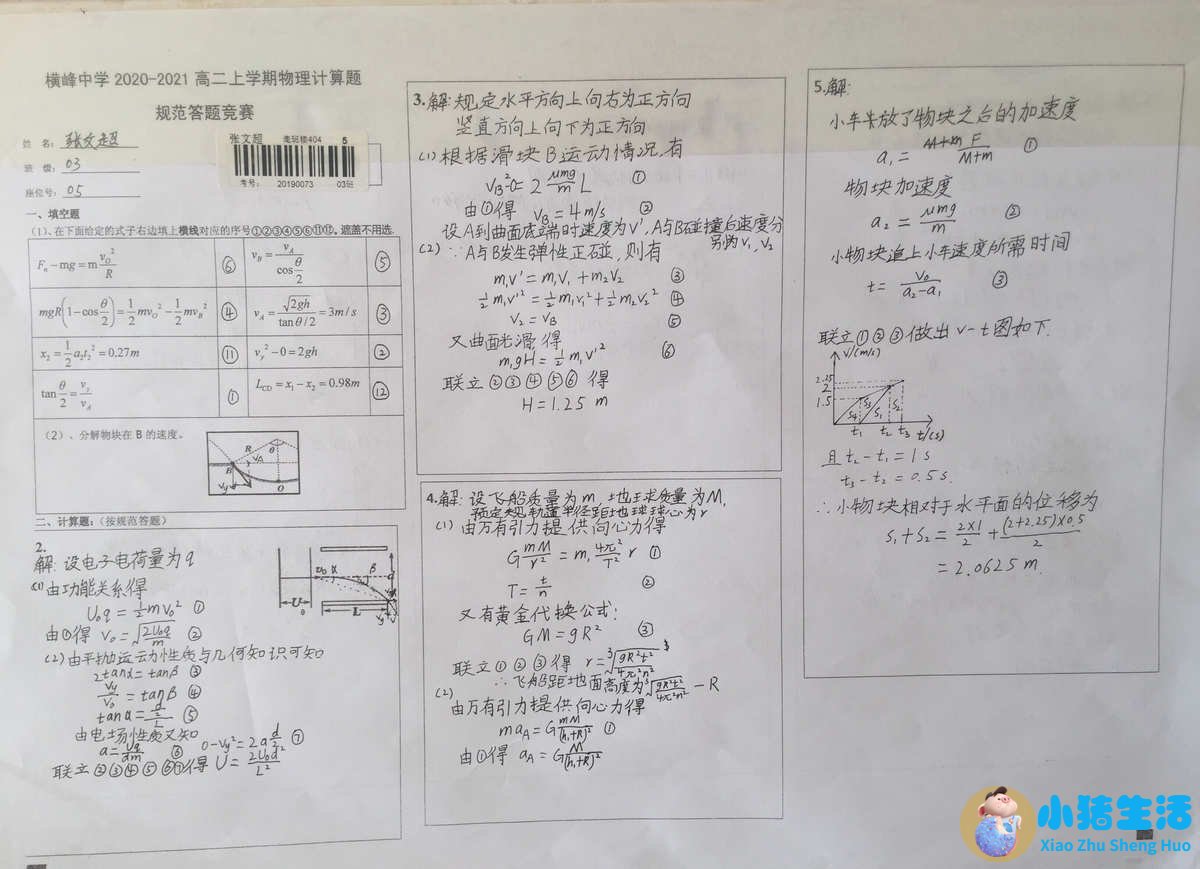 横峰中学 2020-2021 高二上学期物理计算题
规范答题竞赛
姓 名: 张文超
班 级: 03
座位号: 05
张文超 毫班楼404 5
考号: 20190073 03班
一、填空题
(1)、在下面给定的式子右边填上横线对应的序号①②③④⑤⑥⑪⑫。遮盖不用选.
Fₙ-mg=m v₀²/R ⑥ v_B = v_A/cos(θ/2) ⑤
mgR(1-cos θ/2)=1/2 mv₀²-1/2 mv_B² ④ v_A=√2gh/tanθ/2=3m/s ③
x₂=1/2 a₂t₂²=0.27m ⑪ v_y²-0=2gh ②
tan θ/2=v_y/v_A ① L_CD=x₁-x₂=0.98m ⑫
(2)、分解物块在 B 的速度。
R θ
B v_A
v_y O
二、计算题:(按规范答题)
2.
解: 设电子电荷量为q
(1)由功能关系得
U₀q=1/2 mv₀² ①
由①得 v₀=√(2U₀q/m) ②
(2)由平抛运动性质与几何知识可知
2tanα=tanβ ③
v_y/v₀=tanβ ④
tanα=(d/2)/L ⑤
由电场性质又知
a=Uq/dm ⑥ 0-v_y²=2a d/2 ⑦
联立②③④⑤⑥⑦得 U=2U₀d²/L²
v₀ α β d
U₀
L v_y
3.解: 规定水平方向上向右为正方向
竖直方向上向下为正方向
(1)根据滑块B运动情况,有
v_B²-0=2 μmg/m L ①
由①得 v_B=4m/s ②
设A到曲面底端时速度为v', A与B碰撞后速度分
别为v₁,v₂
(2) ∵A与B发生弹性正碰,则有
m₁v'=m₁v₁+m₂v₂ ③
1/2 m₁v'²=1/2 m₁v₁²+1/2 m₂v₂² ④
v₂=v_B ⑤
又曲面光滑,得
m₁gH=1/2 m₁v'² ⑥
联立②③④⑤⑥得
H=1.25 m
4.解: 设飞船质量为m, 地球质量为M,
预定圆轨道半径距地球球心为r
(1) 由万有引力提供向心力得
G mM/r²=m 4π²/T² r ①
T=t/n ②
又有黄金代换公式:
GM=gR² ③
联立①②③得 r=³√(gR²t²/4π²n²)
∴飞船距地面高度为³√(gR²t²/4π²n²)-R
(2)
由万有引力提供向心力得
ma_A=G mM/(h₁+R)² ①
由①得 a_A=G M/(h₁+R)²
5.解:
小车放了物块之后的加速度
a₁= F/M+m ①
物块加速度
a₂=μmg/m ②
小物块追上小车速度所需时间
t=v₀/a₂-a₁ ③
联立①②③做出v-t图如下.
v/(m/s)
2.25
2
1.5
S₄ S₃ S₁ S₂
t₁ t₂ t₃ t/(s)
且 t₂-t₁=1s
t₃-t₂=0.5s.
∴小物块相对于水平面的位移为
S₁+S₂=2×1/2+(2+2.25)×0.5/2
=2.0625m.
小猪生活
Xiao Zhu Sheng Huo